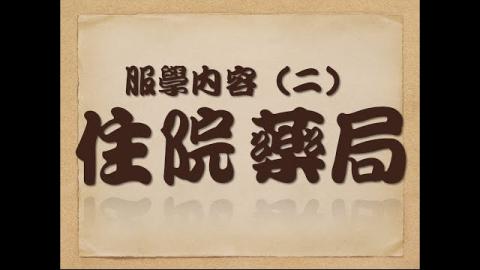 服學內容（二）
住院藥局